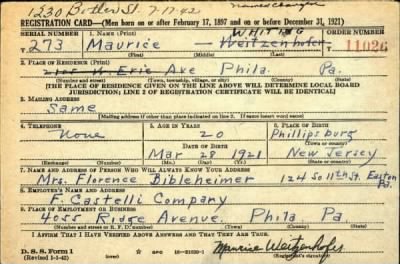 1230 Butler St. 7-17-42 Name Change
REGISTRATION CARD—(Men born on or after February 17, 1897 and on or before December 31, 1921)
SERIAL NUMBER 1. NAME (Print) WHITING ORDER NUMBER
T 273 Maurice — Weitzenhofer 11026
(First) (Middle) (Last)
2. PLACE OF RESIDENCE (Print)
W. Erie Ave Phila. Pa.
(Number and street) (Town, township, village, or city) (County) (State)
[THE PLACE OF RESIDENCE GIVEN ON THE LINE ABOVE WILL DETERMINE LOCAL BOARD
JURISDICTION; LINE 2 OF REGISTRATION CERTIFICATE WILL BE IDENTICAL]
3. MAILING ADDRESS
Same
[Mailing address if other than place indicated on line 2. If same insert word same]
4. TELEPHONE 5. AGE IN YEARS 6. PLACE OF BIRTH
None 20 Phillipsburg
DATE OF BIRTH (Town or county)
Mar 28 1921 New Jersey
(Exchange) (Number) (Mo.) (Day) (Yr.) (State or country)
7. NAME AND ADDRESS OF PERSON WHO WILL ALWAYS KNOW YOUR ADDRESS
Mrs. Florence Bibleheimer 124 So 11th St. Easton Pa.
8. EMPLOYER'S NAME AND ADDRESS
F. Castelli Company
9. PLACE OF EMPLOYMENT OR BUSINESS
4055 Ridge Avenue. Phila Pa.
(Number and street or R. F. D. number) (Town) (County) (State)
I AFFIRM THAT I HAVE VERIFIED ABOVE ANSWERS AND THAT THEY ARE TRUE.
D. S. S. Form 1
(Revised 1-5-42) GPO 16-21630-1 Maurice Weitzenhofer